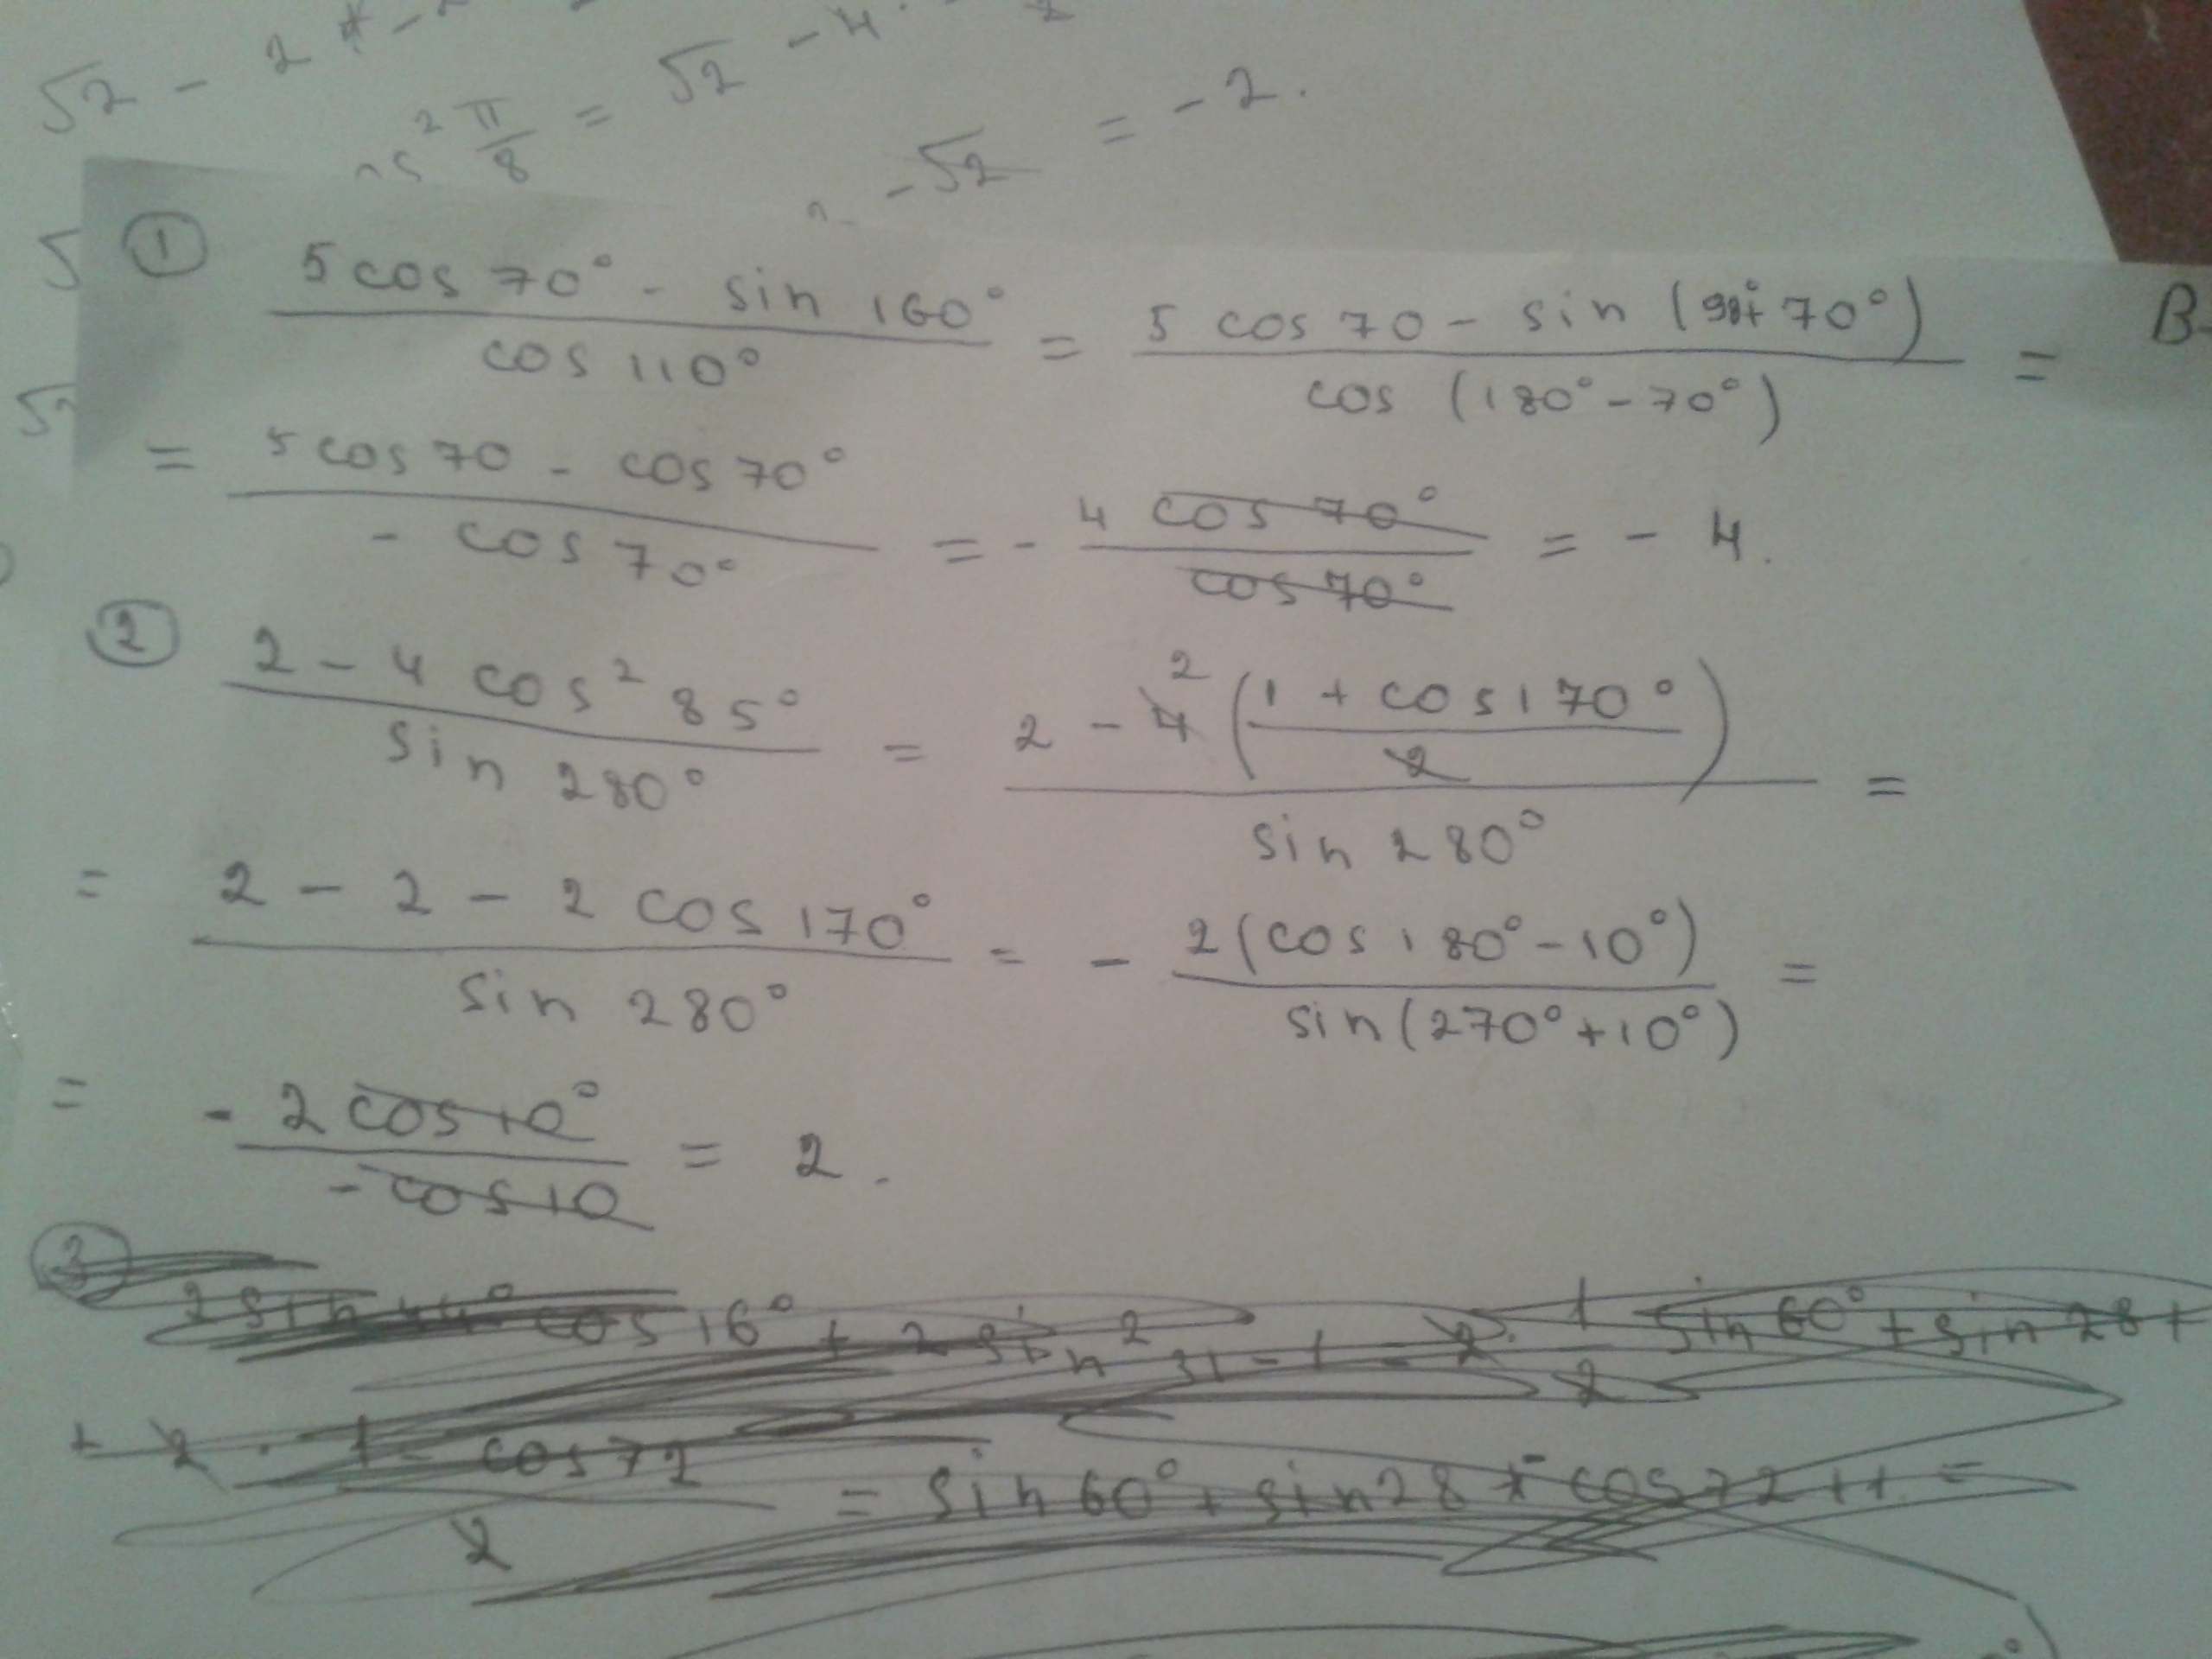 √2 - 2
π/8 = √2 - 4
- √2 = - 2.
① (5 cos 70° - sin 160°)/(cos 110°) = (5 cos 70 - sin (90°+ 70°))/(cos (180° - 70°)) =
B
= (5 cos 70 - cos 70°)/(- cos 70°) = - (4 cos 70°)/(cos 70°) = - 4.
② (2 - 4 cos² 85°)/(sin 280°) = (2 - 4 2 ((1 + cos 170°)/2))/(sin 280°) =
= (2 - 2 - 2 cos 170°)/(sin 280°) = - (2 (cos 180° - 10°))/(sin (270° + 10°)) =
= (- 2 cos 10°)/(- cos 10) = 2.
③
2 sin 44° cos 16° + 2 sin² 31 - 1 = 2 · 1/2 sin 60° + sin 28 +
+ 2 · (1 - cos 72)/2 = sin 60° + sin 28 + - cos 72 + 1 =